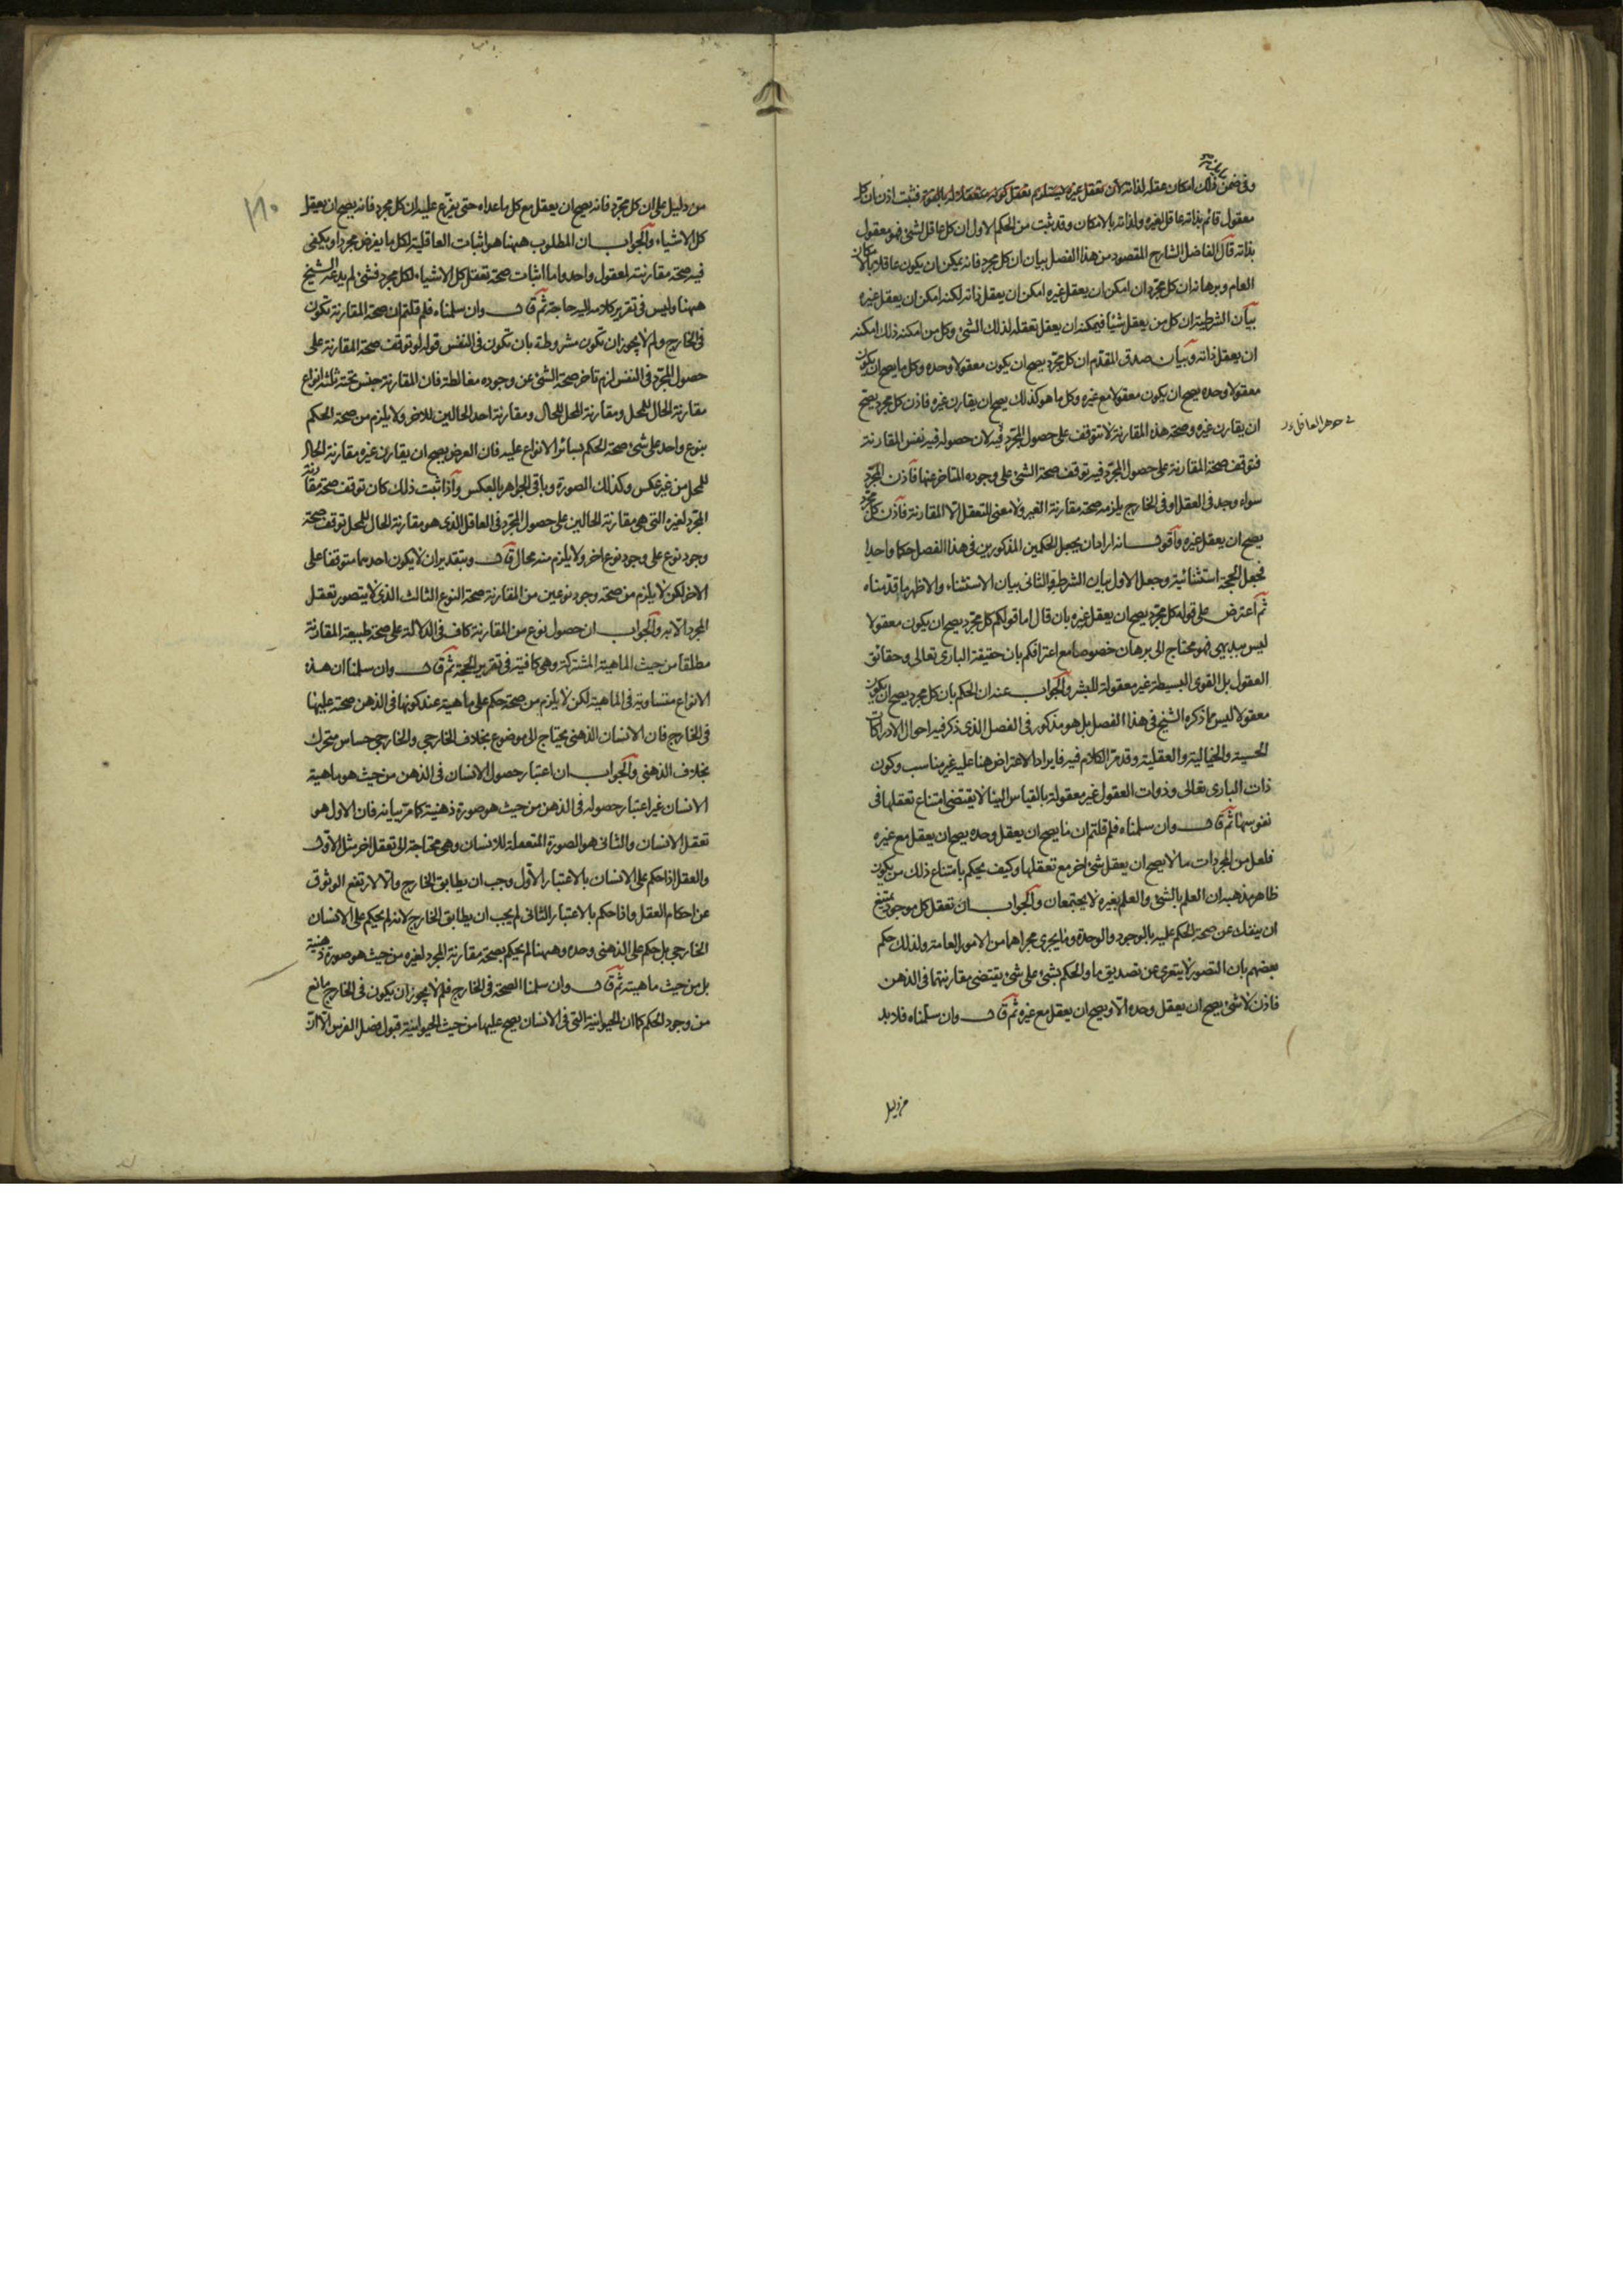 وفى ضمن ذلك امكان عقله لذاته لان تعقل غيره يستلزم تعقل كونه متعقلا له بالقوة فثبت اذن ان كل
معقول قائم بذاته عاقل لغيره ولذاته بالامكان وقد ثبت من الحكم الاول ان كل عاقل لشئ فهو معقول
بذاته قال الفاضل الشارح المقصود من هذا الفصل بيان ان كل مجرد فانه يمكن ان يكون عاقلا بالامكان
العام وبرهانه ان كل مجرد ان امكن ان يعقل غيره امكن ان يعقل ذاته لكنه امكن ان يعقل غيره
بيان الشرطية ان كل من يعقل شيئا فيمكنه ان يعقل تعقله لذلك الشئ وكل من امكنه ذلك امكنه
ان يعقل ذاته وبيان صدق المقدم ان كل مجرد يصح ان يكون معقولا وحده وكل ما يصح ان يكون
معقولا وحده يصح ان يكون معقولا مع غيره وكل ما هو كذلك يصح ان يقارن غيره فاذن كل مجرد يصح
ان يقارن غيره وصحة هذه المقارنة لا تتوقف على حصول المجرد فيه لان حصوله فيه نفس المقارنة
فى جوهر العاقل
فتوقف صحة المقارنة على حصول المجرد فيه توقف صحة الشئ على وجوده المتاخر عنها فاذن المجرد
سواء وجد فى العقل او فى الخارج يلزمه صحة مقارنة الغير ولا معنى للتعقل الا المقارنة فاذن كل مجرد
يصح ان يعقل غيره واقول انه اراد ان يجعل الحكمين المذكورين فى هذا الفصل حكما واحدا
فجعل الحجة استثنائية وجعل الاول بيان الشرطية والثانى بيان الاستثناء والاظهر ما قدمناه
ثم اعترض على قوله كل مجرد يصح ان يعقل غيره بان قال اما قولكم كل مجرد يصح ان يكون معقولا
ليس ببديهى فهو محتاج الى برهان خصوصا مع اعترافكم بان حقيقة البارى تعالى وحقائق
العقول بل القوى البسيطة غير معقولة للبشر والجواب عنه ان الحكم بان كل مجرد يصح ان يكون
معقولا ليس ما ذكره الشيخ فى هذا الفصل بل هو مذكور فى الفصل الذى ذكر فيه احوال الادراكات
الحسية والخيالية والعقلية وقد مر الكلام فيه فايراد الاعتراض هنا عليه غير مناسب وكون
ذات البارى تعالى وذوات العقول غير معقولة بالقياس الينا لا يقتضى امتناع تعقلها فى
نفوسها ثم قال وان سلمناه فلم قلتم ان ما يصح ان يعقل وحده يصح ان يعقل مع غيره
فلعل من المجردات ما لا يصح ان يعقل شئ اخر مع تعقلها وكيف يحكم بامتناع ذلك من يكون
ظاهر مذهبه ان العلم بالشئ والعلم بغيره لا يجتمعان والجواب ان تعقل كل موجود يمتنع
ان ينفك عن صحة الحكم عليه بالوجود والوحدة وما يجرى مجراهما من الامور العامة ولذلك حكم
بعضهم بان التصور لا يتعرى عن تصديق ما والحكم بشئ على شئ يقتضى مقارنتهما فى الذهن
فاذن لا شئ يصح ان يعقل وحده الا ويصح ان يعقل مع غيره ثم قال وان سلمناه فلا بد
من دليل
١٨٠
من دليل على ان كل مجرد فانه يصح ان يعقل مع كل ما عداه حتى يفرع عليه ان كل مجرد فانه يصح ان يعقل
كل الاشياء والجواب ان المطلوب ههنا هو اثبات العاقلية لكل ما يفرض مجردا ويكفى
فيه صحة مقارنته لمعقول واحد واما اثبات صحة تعقل كل الاشياء لكل مجرد فشئ لم يدعه الشيخ
ههنا وليس فى تقرير كلامه اليه حاجة ثم قال وان سلمناه فلم قلتم ان صحة المقارنة تكون
فى الخارج ولم لا يجوز ان تكون مشروطة بان تكون فى النفس قوله لو توقف صحة المقارنة على
حصول المجرد فى النفس لزم تاخر صحة الشئ عن وجوده مغالطة فان المقارنة جنس تحته ثلثة انواع
مقارنة الحال للمحل ومقارنة المحل للحال ومقارنة احد الحالين للاخر ولا يلزم من صحة الحكم
بنوع واحد على شئ صحة الحكم بسائر الانواع عليه فان العرض يصح ان يقارن غيره مقارنة الحال
للمحل من غير عكس وكذلك الصورة وباقى الجواهر بالعكس واذا ثبت ذلك كان توقف صحة مقارنة
المجرد لغيره التى هى مقارنة الحالين على حصول المجرد فى العاقل الذى هو مقارنة الحال للمحل توقف صحة
وجود نوع على وجود نوع اخر ولا يلزم منه محال قال وبتقدير ان لا يكون احدهما متوقفا على
الاخر لكن لا يلزم من صحة وجود نوعين من المقارنة صحة النوع الثالث الذى لا يتصور تعقل
المجرد الا به والجواب ان حصول نوع من المقارنة كاف فى الدلالة على صحة طبيعة المقارنة
مطلقا من حيث الماهية المشتركة وهى كافية فى تقرير الحجة ثم قال وان سلمنا ان هذه
الانواع متساوية فى الماهية لكن لا يلزم من صحة حكم على ماهية عند كونها فى الذهن صحة عليها
فى الخارج فان الانسان الذهنى يحتاج الى موضوع بخلاف الخارجى والخارجى حساس متحرك
بخلاف الذهنى والجواب ان اعتبار حصول الانسان فى الذهن من حيث هو ماهية
الانسان غير اعتبار حصوله فى الذهن من حيث هو صورة ذهنية كما مر بيانه فان الاول هو
تعقل الانسان والثانى هو الصورة المتعقلة للانسان وهى محتاجة الى تعقل اخر مثل الاول
والعقل اذا حكم على الانسان بالاعتبار الاول وجب ان يطابق الخارج والا لارتفع الوثوق
عن احكام العقل واذا حكم بالاعتبار الثانى لم يجب ان يطابق الخارج لانه لم يحكم على الانسان
الخارجى بل حكم على الذهنى وحده وههنا لم يحكم بصحة مقارنة المجرد لغيره من حيث هو صورة ذهنية
بل من حيث ماهيته ثم قال وان سلمنا الصحة فى الخارج فلم لا يجوز ان يكون فى الخارج مانع
من وجود الحكم كما ان الحيوانية التى فى الانسان يصح عليها من حيث الحيوانية قبول فصل الفرس الا ان